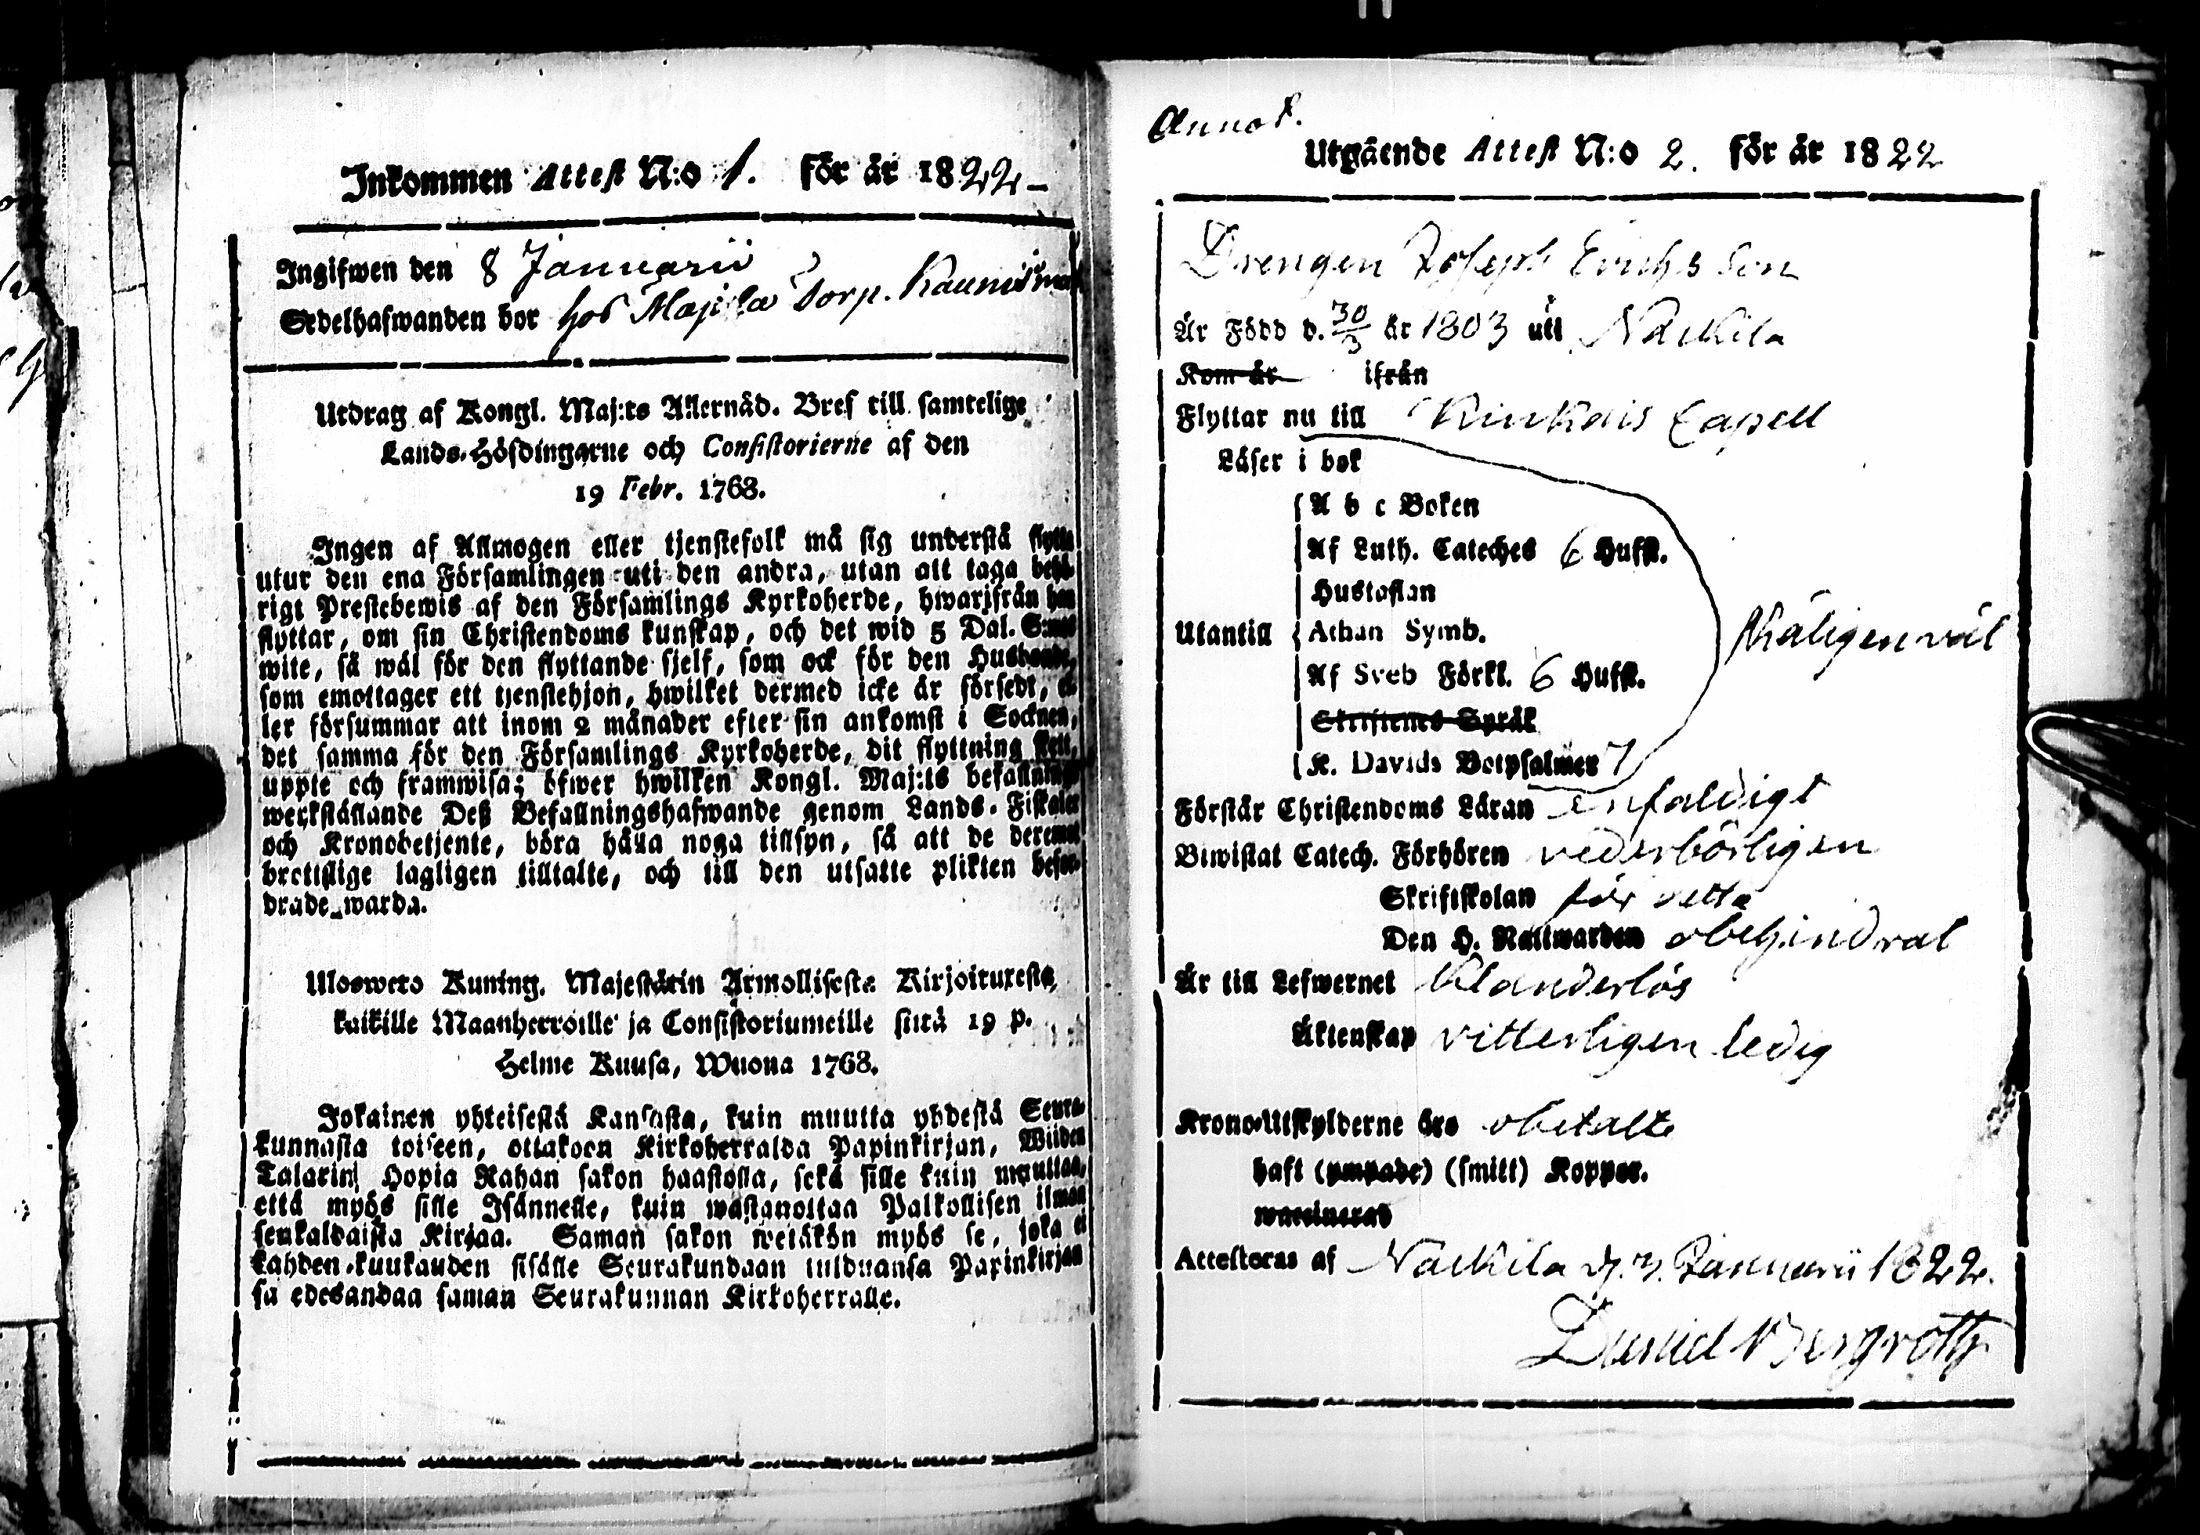 Inkommen Attest N:o 1. för år 1822
Ingifwen den 8 Januarii
Sedelhafwanden bor hos Majsla Torp.
Utdrag af Kongl. Maj:ts Allernåd. Bref till samtelige
Lands-Höfdingarne och Consistorierne af den
19 Febr. 1768.
Ingen af Allmogen eller tjenstefolk må sig understå flytta
utur den ena Församlingen uti den andra, utan att taga behö-
rigt Prestebewis af den Församlings Kyrkoherde, hwarifrån han
flyttar, om sin Christendoms kunskap, och det wid 5 Dal. S:mts
wite, så wäl för den flyttande sjelf, som ock för den Husbonde,
som emottager ett tjenstehjon, hwilket dermed icke är försedt, el-
ler försummar att inom 2 månader efter sin ankomst i Socknen,
det samma för den Församlings Kyrkoherde, dit flyttning skett,
uppte och framwisa; öfwer hwilken Kongl. Maj:ts befallning
werkställande Deß Befallningshafwande genom Lands-Fiskaler
och Kronobetjente, böra hålla noga tillsyn, så att de deremot
brottslige lagligen tilltalte, och till den utsatte plikten befor-
drade warda.
Uloswero Kuning. Majestätin Armollisesta Kirjoituxesta,
kaikille Maanherroille ja Consistoriumeille siitä 19 p.
Helme Kuusa, Wuona 1768.
Jokainen yhteisestä Kansasta, kuin muutta yhdestä Seura-
kunnasta toiseen, ottakoon Kirkoherralda Papinkirjan, Wiiden
Talarin Hopia Rahan sakon haastolla, sekä sille kuin muuttaa,
että myös sille Isännelle, kuin wastanottaa Palkollisen ilman
senkaldaista Kirjaa. Saman sakon wetäkön myös se, joka ei
kahden kuukauden sisälle Seurakundaan tulduansa Papinkirjaa
sa edesandaa saman Seurakunnan Kirkoherralle.
Annot.
Utgående Attest N:o 2. för år 1822
Drengen Joseph Erichsson
Är Född d. 30/3 år 1803 uti Nackila
Kom år ifrån
Flyttar nu till Kinkais Capell
Läser i bok
A b c Boken
Af Luth. Cateches 6 Hufst.
Hustaflan
Utantill Athan Symb. skäligen väl
Af Sveb Förkl. 6 Hufst.
Skriftenes Språk
K. Davids Botpsalmer 7
Förstår Christendoms Läran enfaldigt
Biwistat Catech. Förhören vederbörligen
Skriftskolan för detta
Den H. Nattwarden obehindrat
Är till Lefwernet Klanderlös
Äktenskap vitterligen ledig
Krono-Utskylderne äro obetalte
haft (ympade) (smitt) Koppor.
waccinerad
Attesteras af Nackila d. 3. Januarii 1822.
Daniel Bergroth